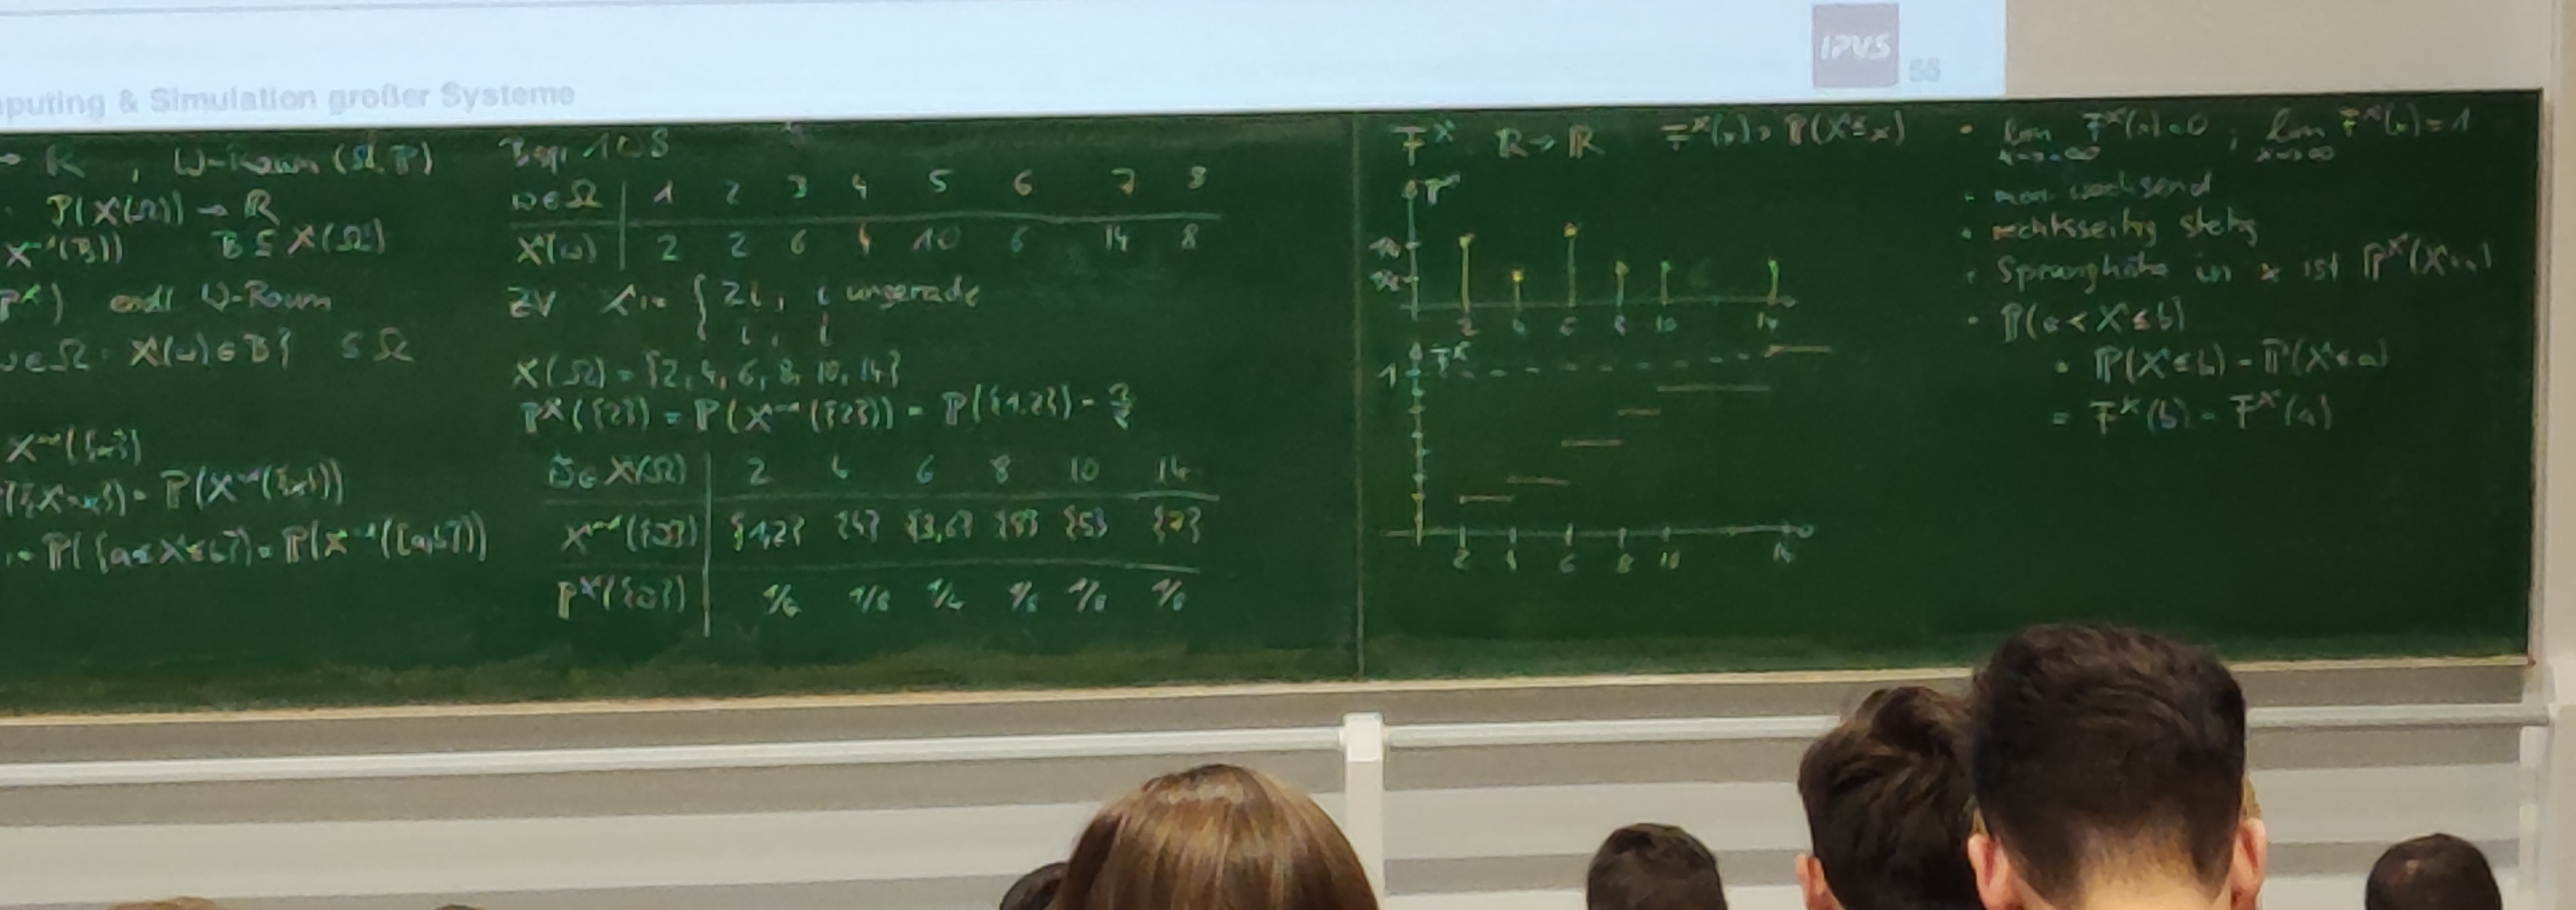 IPVS
55
puting & Simulation großer Systeme
→ ℝ , W-Raum (Ω, ℙ)
P(X(Ω)) → ℝ
X⁻¹(B)) B ⊆ X(Ω)
ℙˣ) endl W-Raum
ω∈Ω: X(ω)∈B} ⊆ Ω
X⁻¹({x})
({X=x}) = ℙ(X⁻¹({x}))
:= ℙ({a≤X≤b}) = ℙ(X⁻¹([a,b]))
Bsp. 108
ω∈Ω 1 2 3 4 5 6 7 8
X(ω) 2 2 6 4 10 6 14 8
ZV X := { 2i, i ungerade
i, i
X(Ω) = {2, 4, 6, 8, 10, 14}
ℙˣ({2}) = ℙ(X⁻¹({2})) = ℙ({1,2}) = 2/8
∈ X(Ω) 2 4 6 8 10 14
X⁻¹({ }) {1,2} {4} {3,6} {8} {5} {7}
ℙˣ({ }) 1/4 1/8 1/4 1/8 1/8 1/8
Fˣ: ℝ → ℝ Fˣ(x) = ℙ(X≤x)
ℙˣ
1/4
1/8
2 4 6 8 10 14
Fˣ
1
2 4 6 8 10 14
• lim x→-∞ Fˣ(x) = 0 ; lim x→∞ Fˣ(x) = 1
• mon. wachsend
• rechtsseitig stetig
• Sprunghöhe in x ist ℙˣ(X=x)
• ℙ(a < X ≤ b)
= ℙ(X≤b) - ℙ(X≤a)
= Fˣ(b) - Fˣ(a)